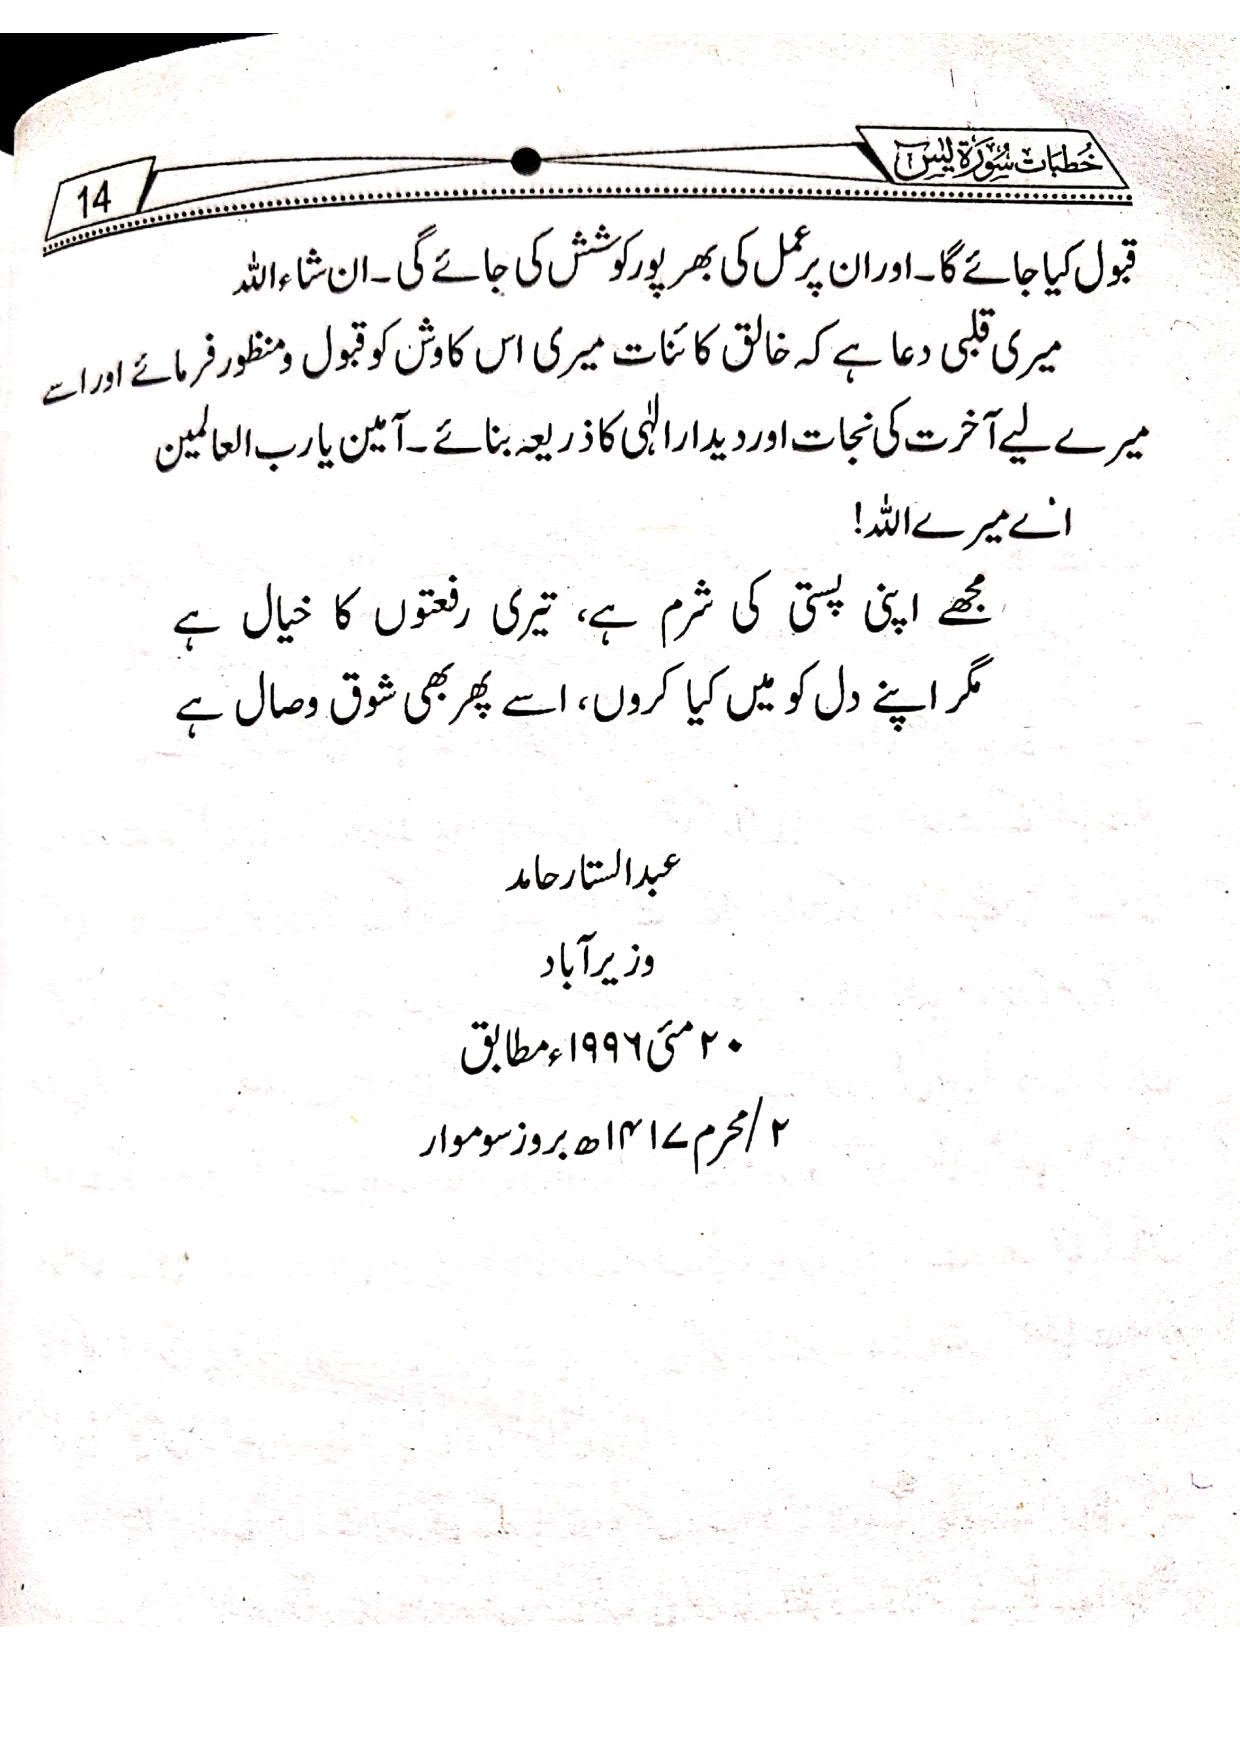 خطبات سورۃ یٰس
14
قبول کیا جائے گا۔ اور ان پر عمل کی بھرپور کوشش کی جائے گی۔ ان شاء اللہ
میری قلبی دعا ہے کہ خالق کائنات میری اس کاوش کو قبول و منظور فرمائے اور اسے
میرے لیے آخرت کی نجات اور دیدار الٰہی کا ذریعہ بنائے۔ آمین یا رب العالمین
اے میرے اللہ!
مجھے اپنی پستی کی شرم ہے، تیری رفعتوں کا خیال ہے
مگر اپنے دل کو میں کیا کروں، اسے پھر بھی شوق وصال ہے
عبدالستار حامد
وزیرآباد
۲۰ مئی ۱۹۹۶ء مطابق
۲/محرم ۱۴۱۷ھ بروز سوموار